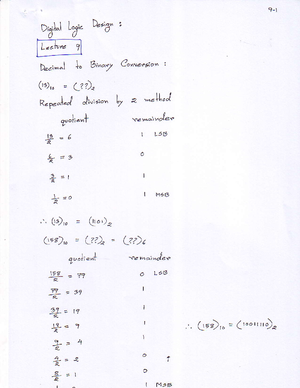 9-1
Digital Logic Design :
Lecture 9
Decimal to Binary Conversion :
(13)₁₀ = (??)₂
Repeated division by 2 method
quotient remainder
13/2 = 6 1 LSB
6/2 = 3 0
3/2 = 1 1
1/2 = 0 1 MSB
∴ (13)₁₀ = (1101)₂
(158)₁₀ = (??)₂ = (??)₆
quotient remainder
158/2 = 79 0 LSB
79/2 = 39 1
39/2 = 19 1
19/2 = 9 1
∴ (158)₁₀ = (10011110)₂
9/2 = 4 1
4/2 = 2 0
2/2 = 1 0
1 MSB